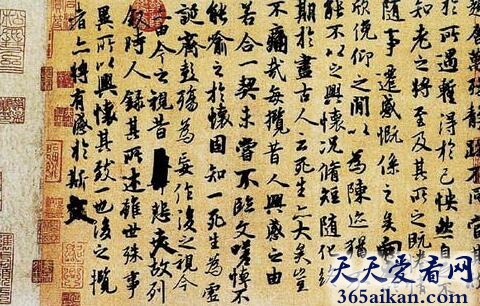 萬殊靜躁不同當其
於所遇蹔得於己怏然自
知老之將至及其所之既惓
隨事遷感慨係之矣向
欣俛仰之閒以為陳迹猶
能不以之興懷況脩短隨化終
期於盡古人云死生亦大矣豈
不痛哉每攬昔人興感之由
若合一契未嘗不臨文嗟悼不
能喻之於懷固知一死生為虛
誕齊彭殤為妄作後之視今
亦由今之視昔悲夫故列
敘時人錄其所述雖世殊事
異所以興懷其致一也後之攬
者亦將有感於斯文
天天爱看网
365aikan.com